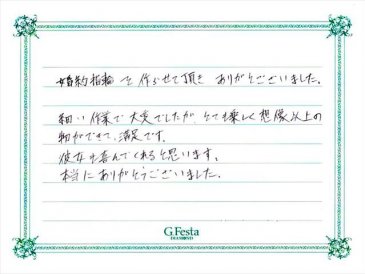 婚約指輪を作らせて頂きありがとございました。
細い作業で大変でしたが、とても楽しく想像以上の
物ができて、満足です。
彼女も喜んでくれると思います。
本当にありがとうございました。
G.Festa
DIAMOND